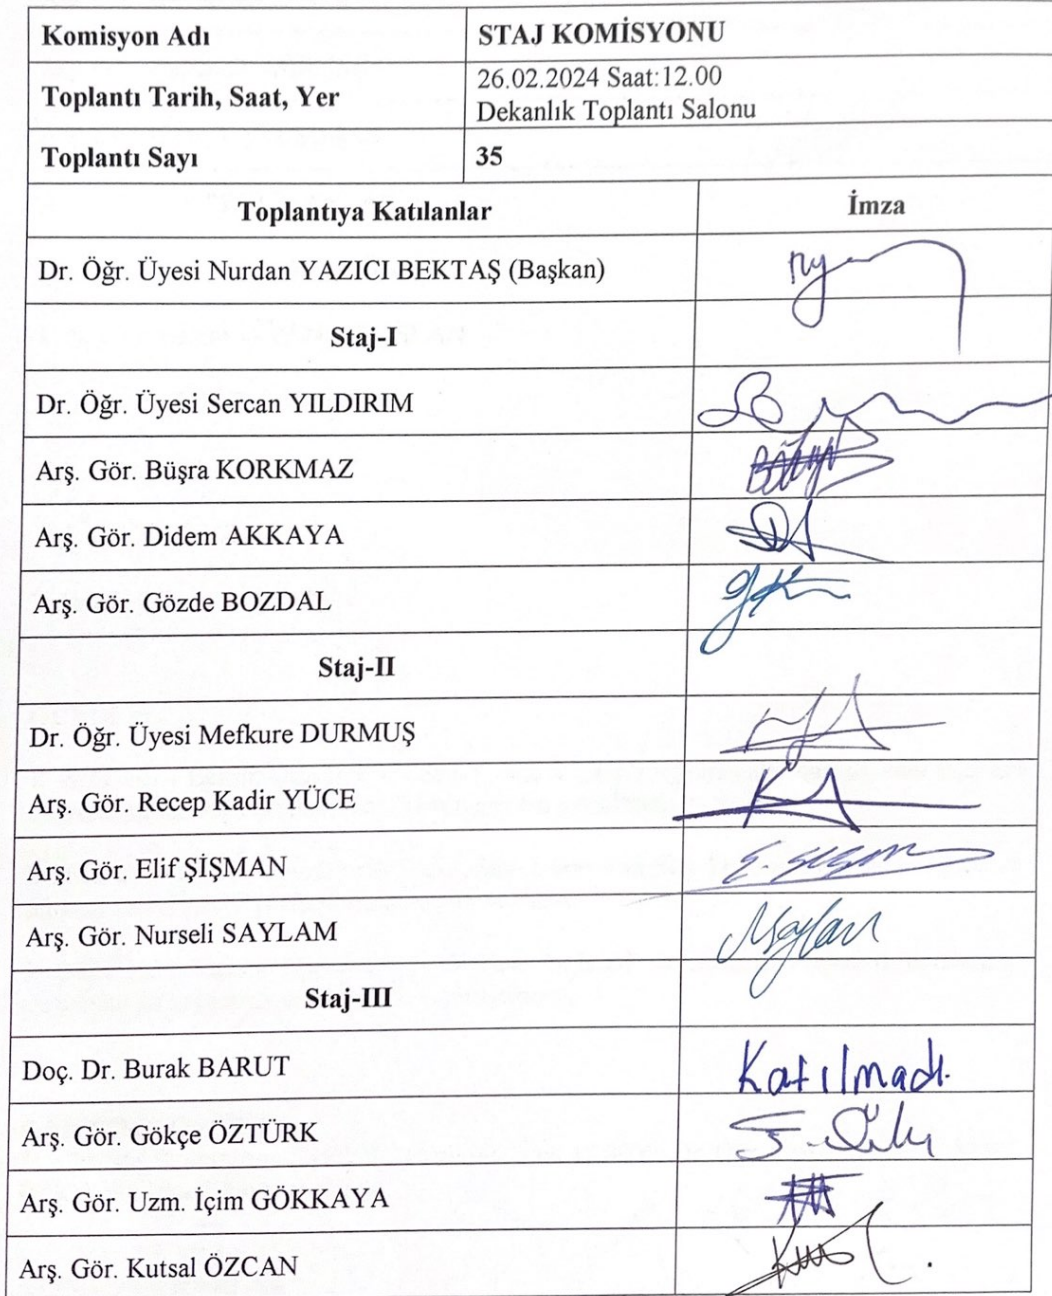 Komisyon Adı
STAJ KOMİSYONU
Toplantı Tarih, Saat, Yer
26.02.2024 Saat:12.00
Dekanlık Toplantı Salonu
Toplantı Sayı
35
Toplantıya Katılanlar
İmza
Dr. Öğr. Üyesi Nurdan YAZICI BEKTAŞ (Başkan)
Staj-I
Dr. Öğr. Üyesi Sercan YILDIRIM
Arş. Gör. Büşra KORKMAZ
Arş. Gör. Didem AKKAYA
Arş. Gör. Gözde BOZDAL
Staj-II
Dr. Öğr. Üyesi Mefkure DURMUŞ
Arş. Gör. Recep Kadir YÜCE
Arş. Gör. Elif ŞİŞMAN
Arş. Gör. Nurseli SAYLAM
Staj-III
Doç. Dr. Burak BARUT
Katılmadı.
Arş. Gör. Gökçe ÖZTÜRK
Arş. Gör. Uzm. İçim GÖKKAYA
Arş. Gör. Kutsal ÖZCAN